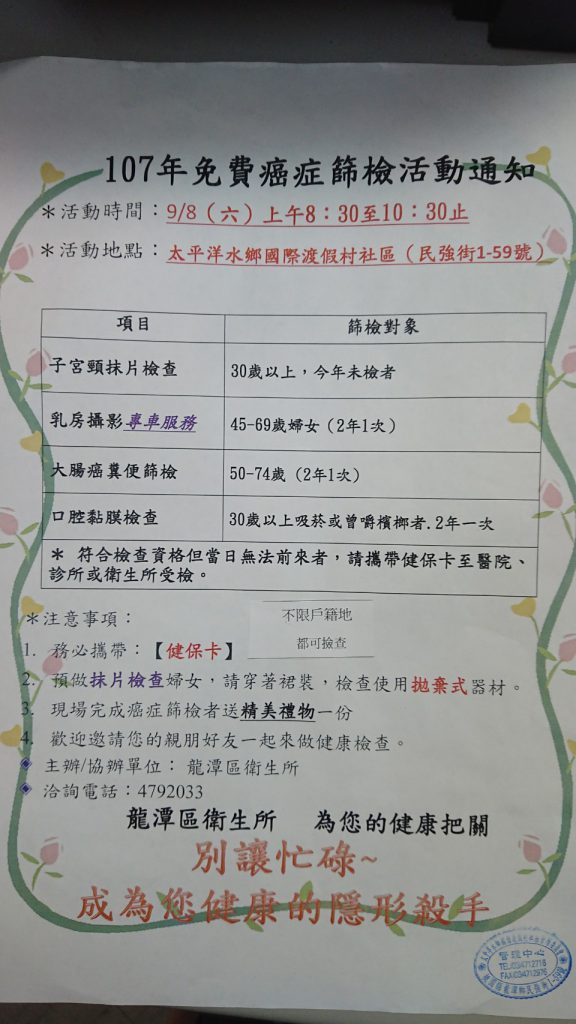 107年免費癌症篩檢活動通知
＊活動時間：9/8（六）上午8：30至10：30止
＊活動地點：太平洋水鄉國際渡假村社區（民強街1-59號）
項目 篩檢對象
子宮頸抹片檢查 30歲以上，今年未檢者
乳房攝影專車服務 45-69歲婦女（2年1次）
大腸癌糞便篩檢 50-74歲（2年1次）
口腔黏膜檢查 30歲以上吸菸或曾嚼檳榔者.2年一次
＊ 符合檢查資格但當日無法前來者，請攜帶健保卡至醫院、
診所或衛生所受檢。
＊注意事項：
不限戶籍地
都可撿查
1. 務必攜帶：【健保卡】
2. 預做抹片檢查婦女，請穿著裙裝，檢查使用拋棄式器材。
3. 現場完成癌症篩檢者送精美禮物一份
4. 歡迎邀請您的親朋好友一起來做健康檢查。
主辦/協辦單位： 龍潭區衛生所
洽詢電話：4792033
龍潭區衛生所 為您的健康把關
別讓忙碌~
成為您健康的隱形殺手
管理中心
TEL:034712715
FAX:034712976